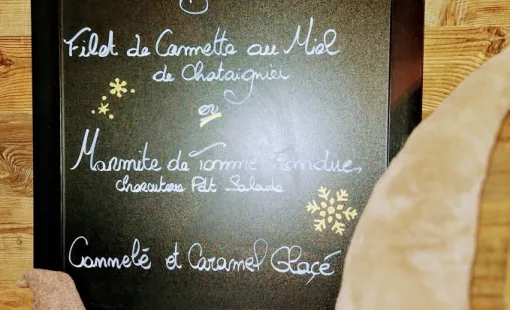 Filet de Cannette au Miel
de Chataignier
ou
Marmite de Tomme Fondue,
charcuterie Pdt Salade
Cannelé et Caramel Glaçé